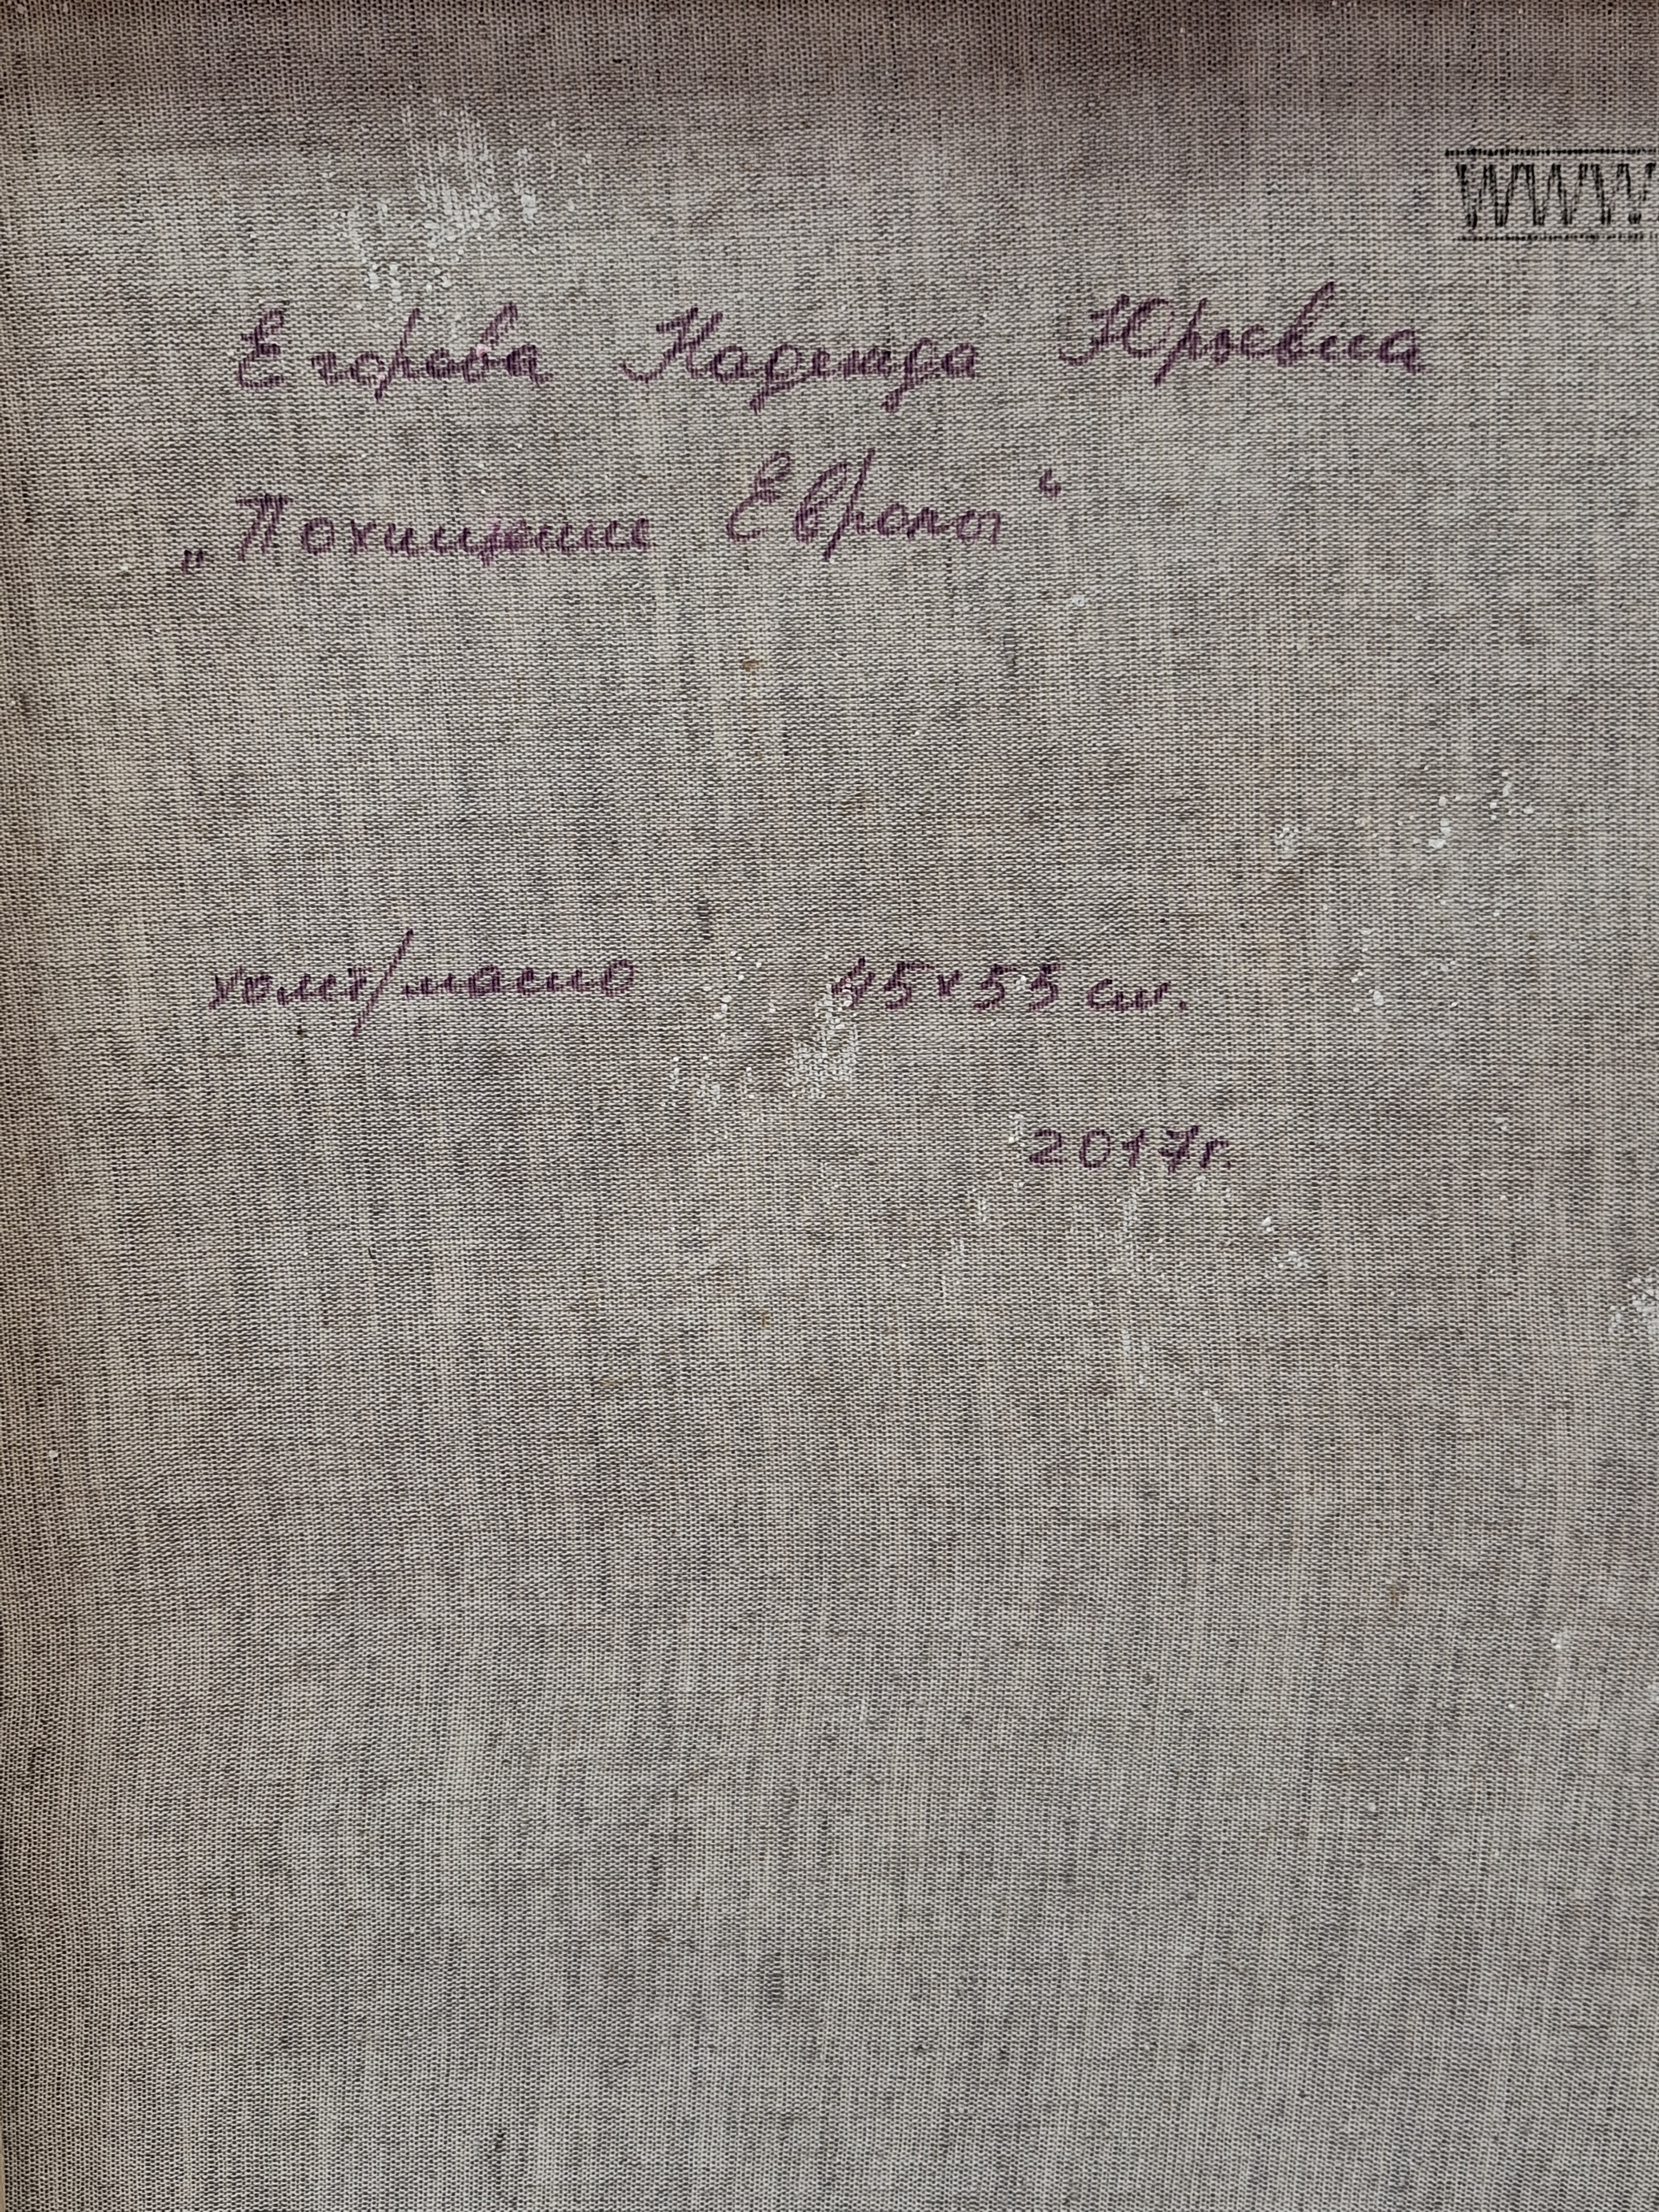 WWW.
Егорова Надежда Юрьевна
„Похищение Европы“
холст/масло 45х55 см.
2017г.